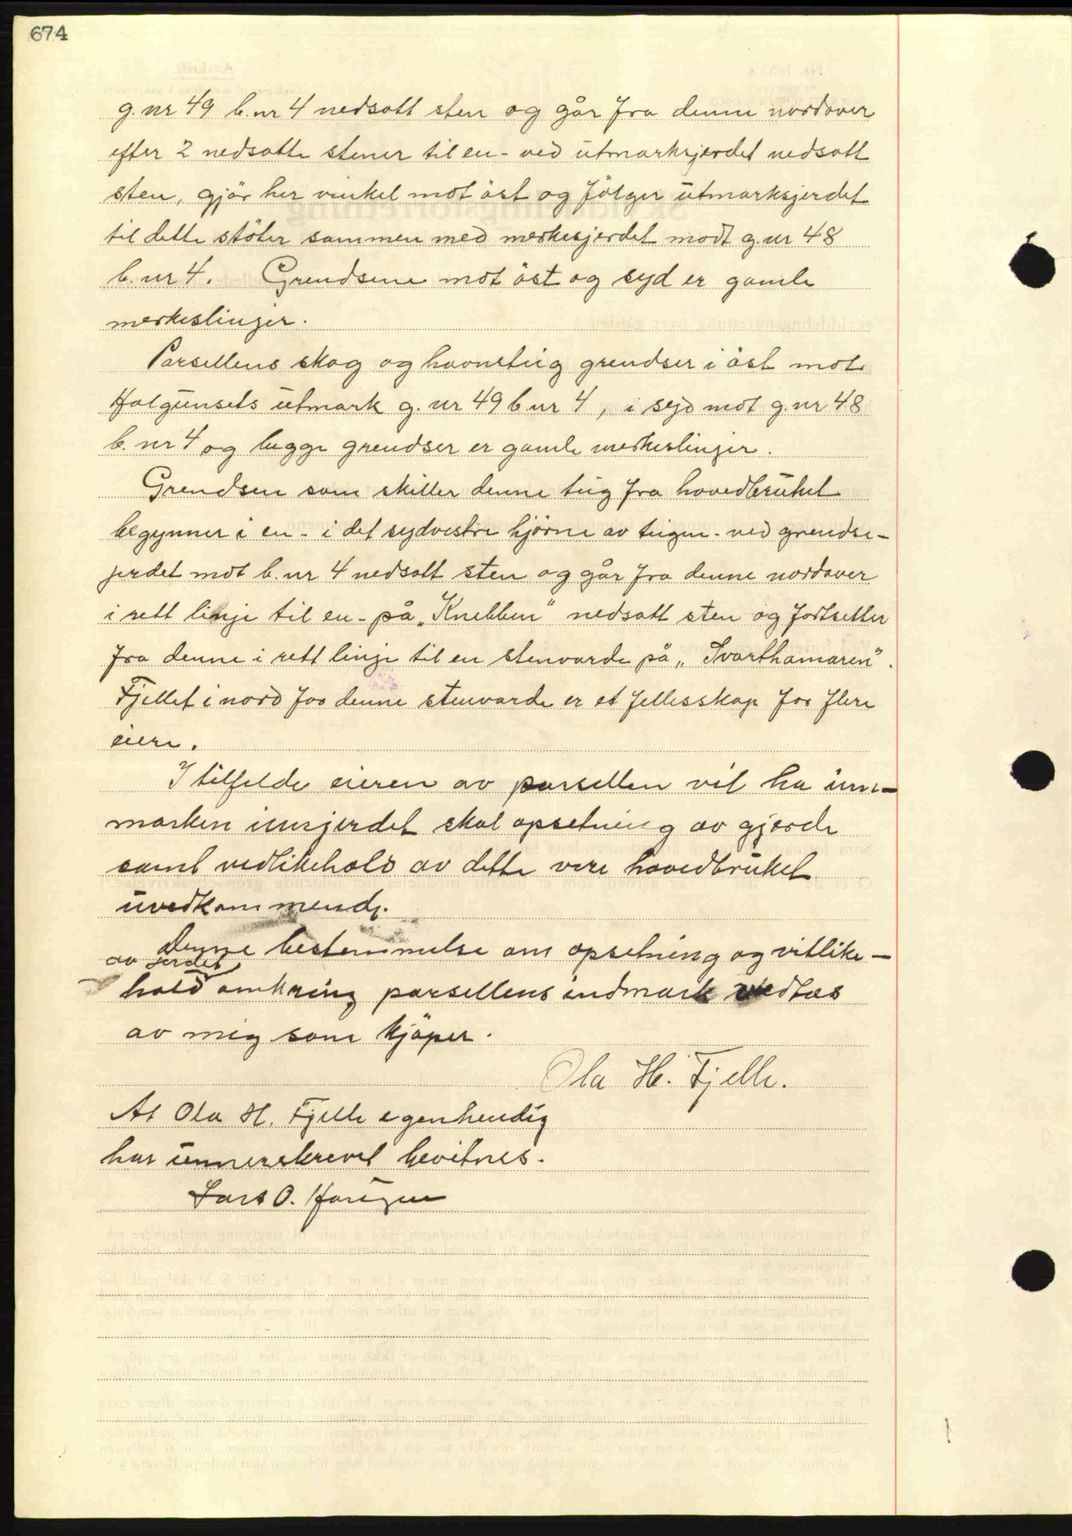 674
g.nr 49 b.nr 4 nedsatt sten og går fra denne nordover
efter 2 nedsatte stener til en - ved utmarksjerdet nedsatt
sten, gjør her vinkel mot øst og følger utmarksjerdet
til dette støter sammen med merkesjerdet modt g.nr 48
b.nr 4. Grendsene mot öst og syd er gamle
merkeslinjer.
Parsellens skog og havneteig grendser i öst mot
utmark g.nr 49 b nr 4, i syd mot g.nr 48
b.nr 4 og begge grendser er gamle merkeslinjer.
Grendsen som skiller denne teig fra hovedbruket
begynner i en - i det sydvestre hjörne av teigen - ved grendse-
jerdet mot b.nr 4 nedsatt sten og går fra denne nordover
i rett linje til en - på „Knebben" nedsatt sten og fortsetter
fra denne i rett linje til en stenvarde på „Svarthamaren".
Fjellet i nord for denne stenvarde er et fellesskap for flere
eiere.
I tilfelde eieren av parsellen vil ha inn-
marken innjerdet skal opsetning av gjerde
samt vedlikehold av dette vere hovedbruket
uvedkommende.
Denne bestemmelse om opsetning og vitlike-
av jerdet
hold omkring parsellens indmark vedtas
av mig som kjöper.
Ola H. Fjelle.
At Ola H. Fjelle egenhendig
har underskrevet bevitnes.
Lars O.